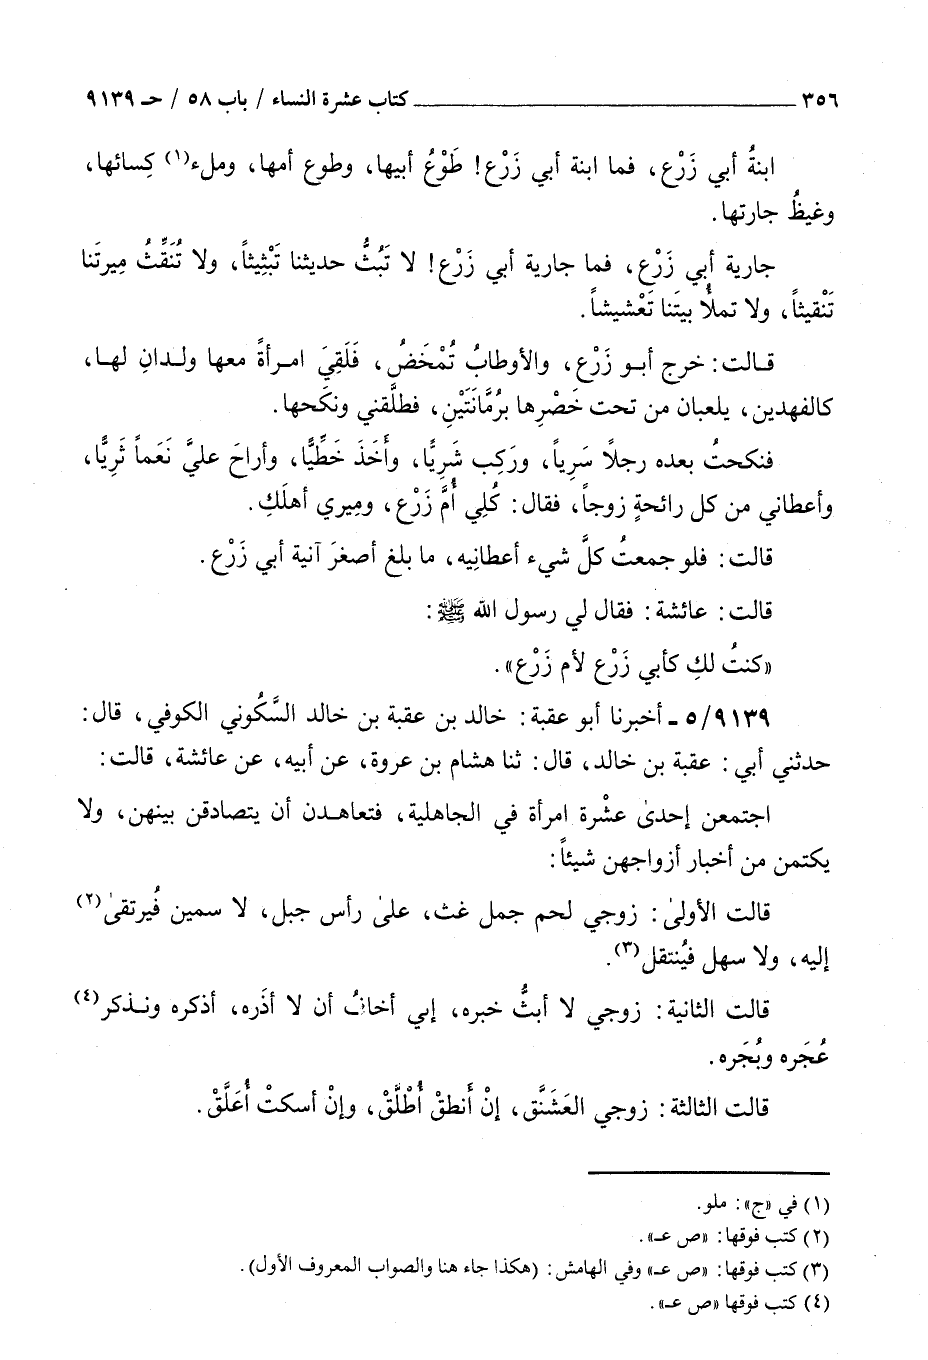 ٣٥٦ ـــــــــــــــــــــ كتاب عشرة النساء / باب ٥٨ / حـ ٩١٣٩
ابنةُ أبي زَرْع، فما ابنة أبي زَرْع! طَوْعُ أبيها، وطوع أمها، وملء(١) كِسائها،
وغيظُ جارتها.
جارية أبي زَرْع، فما جارية أبي زَرْع! لا تَبُثُّ حديثنا تَبْثِيثاً، ولا تُنَقِّثُ مِيرتَنا
تَنْقيثاً، ولا تملأُ بيتَنا تَعْشيشاً.
قـالت: خرج أبـو زَرْع، والأوطابُ تُمْخَضُ، فَلَقِيَ امـرأةً معها ولـدانِ لهـا،
كالفهدين، يلعبان من تحت خَصْرِها برُمَّانَتَيْنِ، فطلَّقني ونكَحها.
فنكحتُ بعده رجلاً سَرِياً، ورَكِب شَرِيًّا، وأَخَذَ خَطِّيًّا، وأراحَ عليَّ نَعَماً ثَرِيًّا،
وأعطاني من كل رائحةٍ زوجاً، فقال: كُلِي أُمَّ زَرْع، ومِيري أهلَكِ.
قالت: فلو جمعتُ كلَّ شيء أعطانِيه، ما بلغ أصغرَ آنية أبي زَرْع.
قالت: عائشة: فقال لي رسول الله ﷺ:
«كنتُ لكِ كأبي زَرْع لأم زَرْع».
٥/٩١٣٩ ـ أخبرنا أبو عقبة: خالد بن عقبة بن خالد السَّكُوني الكوفي، قال:
حدثني أبي: عقبة بن خالد، قال: ثنا هشام بن عروة، عن أبيه، عن عائشة، قالت:
اجتمعن إحدىٰ عشْرة امرأة في الجاهلية، فتعاهـدن أن يتصادقن بينهن، ولا
يكتمن من أخبار أزواجهن شيئاً:
قالت الأولىٰ: زوجي لحم جمل غث، علىٰ رأس جبل، لا سمين فُيرتقىٰ(٢)
إليه، ولا سهل فيُنتقل(٣).
قالت الثانية: زوجي لا أبثُّ خبره، إني أخافُ أن لا أذَره، أذكره ونـذكر(٤)
عُجَره وبُجَره.
قالت الثالثة: زوجي العَشَنَّق، إنْ أَنطقْ أُطْلَّقْ، وإنْ أسكتْ أُعَلَّقْ.
(١) في «ج»: ملو.
(٢) كتب فوقها: «ص عـ».
(٣) كتب فوقها: «ص عـ» وفي الهامش: (هكذا جاء هنا والصواب المعروف الأول).
(٤) كتب فوقها «ص عـ».